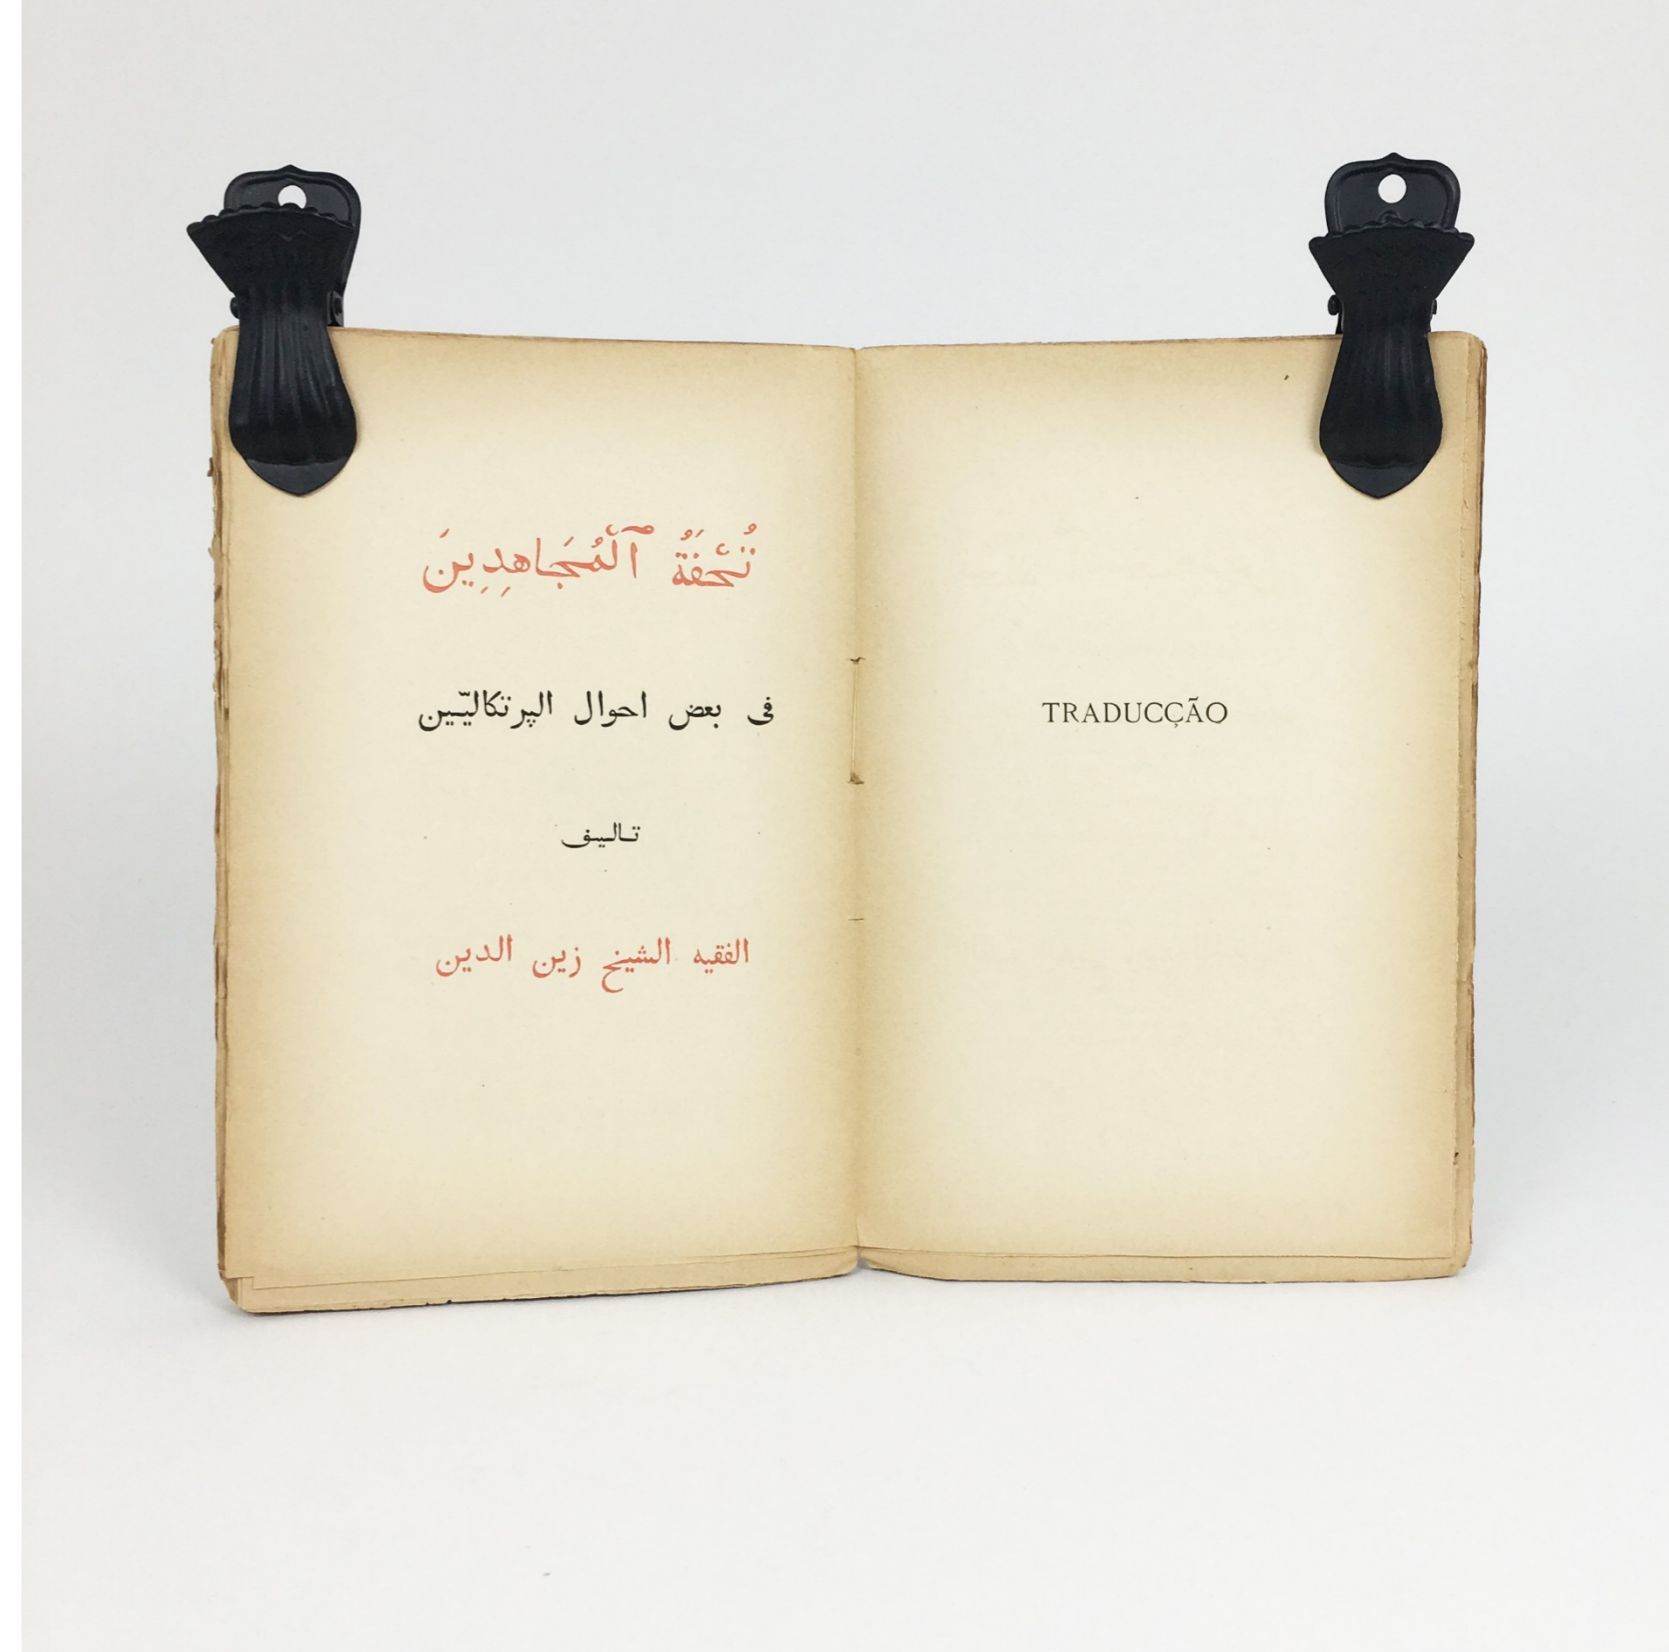 تُحْفَةُ ٱلْمُجَاهِدِينَ
فى بعض احوال الپرتكاليّين
تاليف
الفقيه الشيخ زين الدين
TRADUCÇÃO